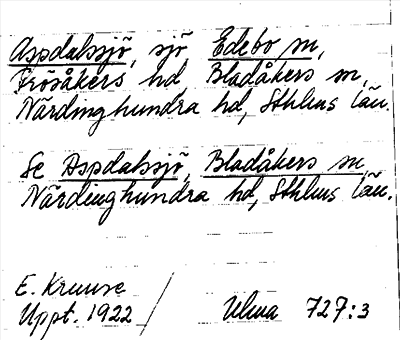 Aspdalssjö, sjö, Edebo sn,
Frösåkers hd, Bladåkers sn,
Närdinghundra hd, Sthlms län.
Se Aspdalssjö, Bladåkers sn
Närdinghundra hd, Sthlms län.
E. Kruuse
Uppt. 1922 / Ulma 727:3